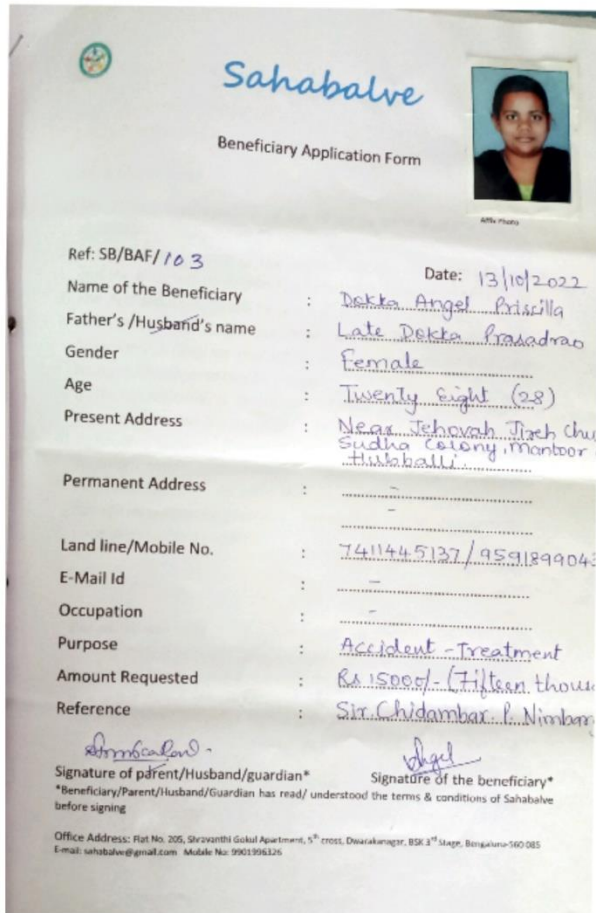 Sahabalve
Beneficiary Application Form
Affix Photo
Ref: SB/BAF/103
Date: 13/10/2022
Name of the Beneficiary : Dokka Angel Priscilla
Father's /Husband's name : Late Dokka Prasadrao
Gender : Female
Age : Twenty Eight (28)
Present Address : Near Jehovah Jireh Chu
Sudha Colony, Mantoor
Hubballi.
Permanent Address : -
-
Land line/Mobile No. : 7411445137/959189904
E-Mail Id : -
Occupation : -
Purpose : Accident - Treatment
Amount Requested : Rs 15000/- (Fifteen thous
Reference : Sir. Chidambar. P. Nimbar
Angel
Signature of parent/Husband/guardian* Signature of the beneficiary*
*Beneficiary/Parent/Husband/Guardian has read/ understood the terms & conditions of Sahabalve
before signing
Office Address: Flat No. 205, Shravanthi Gokul Apartment, 5th cross, Dwarakanagar, BSK 3rd Stage, Bengaluru-560 085
E-mail: sahabalve@gmail.com Mobile No: 9901996326